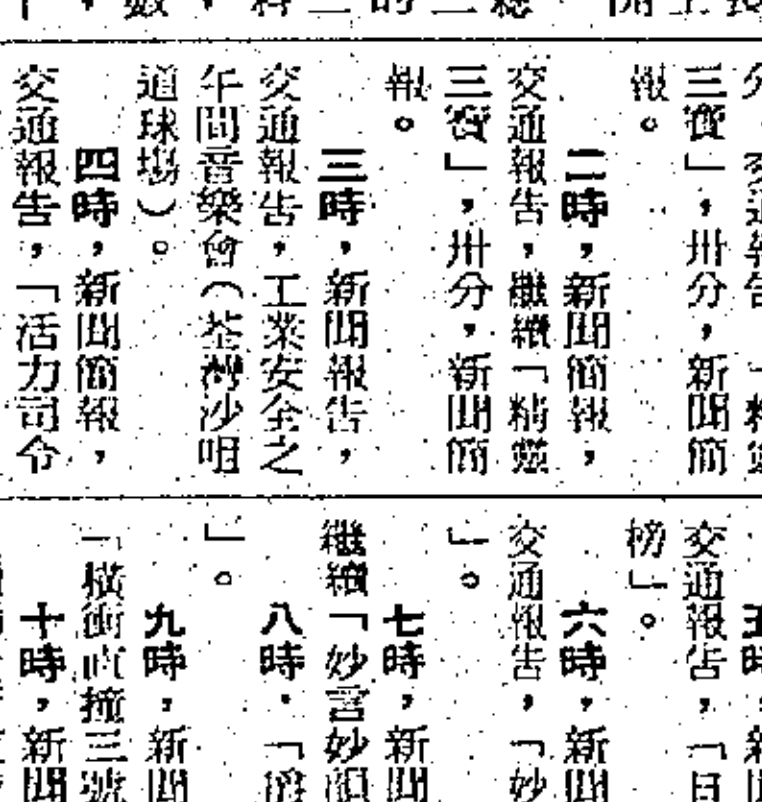 三寶」，卅分，新聞簡
報。
二時，新聞簡報，
交通報告，繼續「精靈
三寶」，卅分，新聞簡
報。
三時，新聞報告，
交通報告，工業安全之
午間音樂會（荃灣沙咀
道球場）。
四時，新聞簡報，
交通報告，「活力司令
交通報告，「日
榜」。
六時，新聞
交通報告，「妙
」。
七時，新聞
繼續「妙言妙韻
八時，「爵
」。
九時，新聞
「橫衝直撞三號
十時，新聞